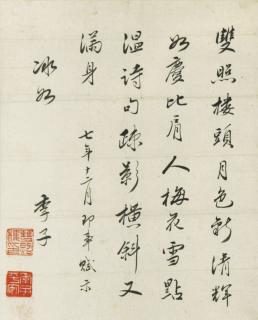 雙照樓頭月色新清輝
如慶比肩人梅花雪點
溫詩句疎影橫斜又
滿身
七年十二月即事賦示
冰如
季子